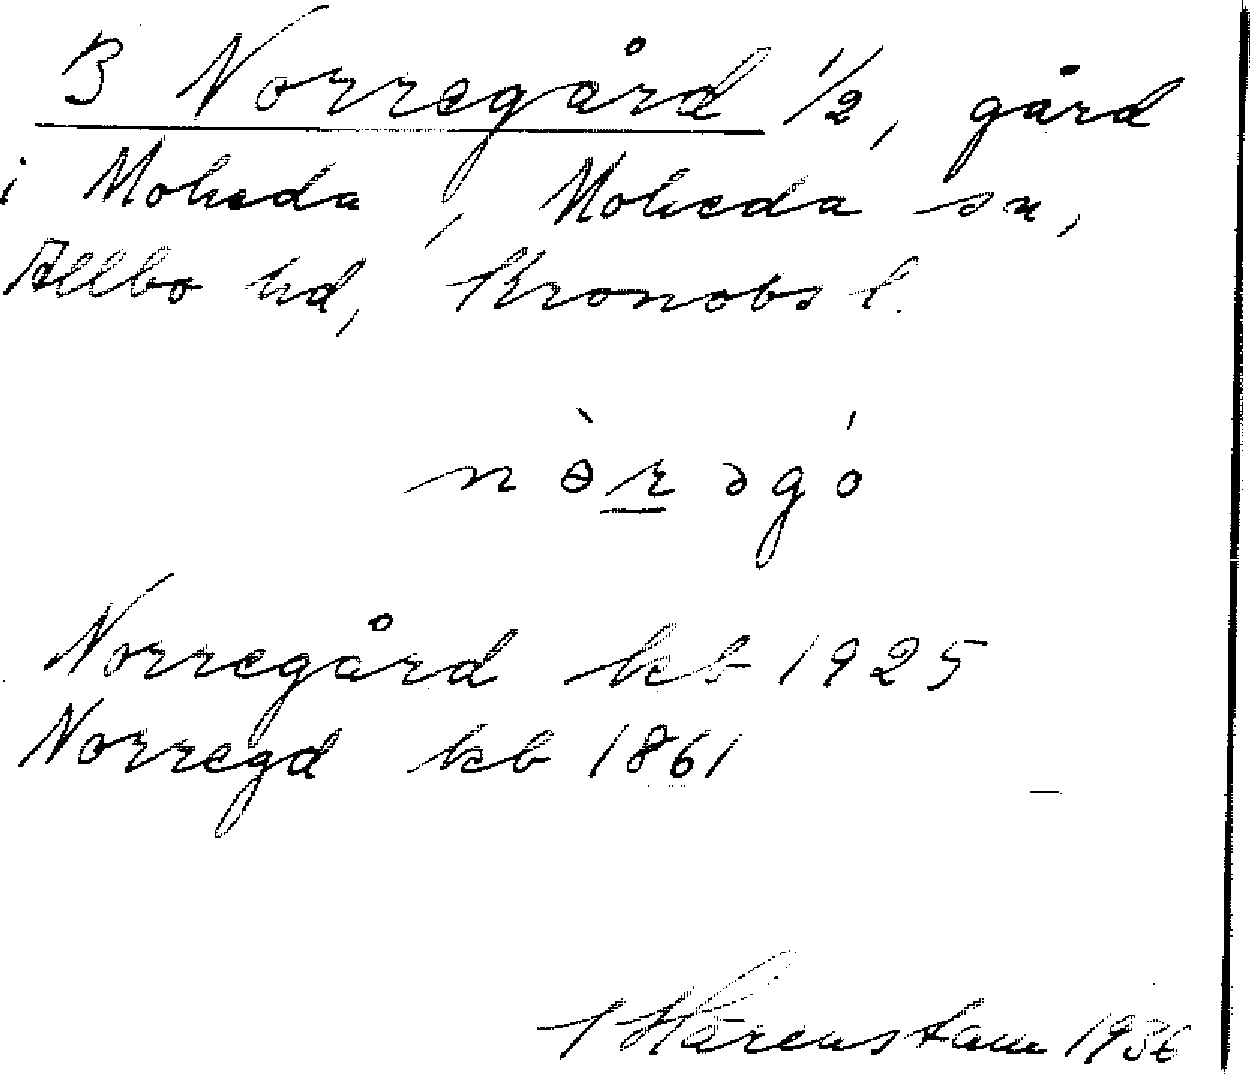 B Norregård 1/2, gård
i Moheda, Moheda sn,
Allbo hd, Kronobs l.
nɵ̀rəgó
Norregård kb 1925
Norregd kb 1861
Härenstam 1936